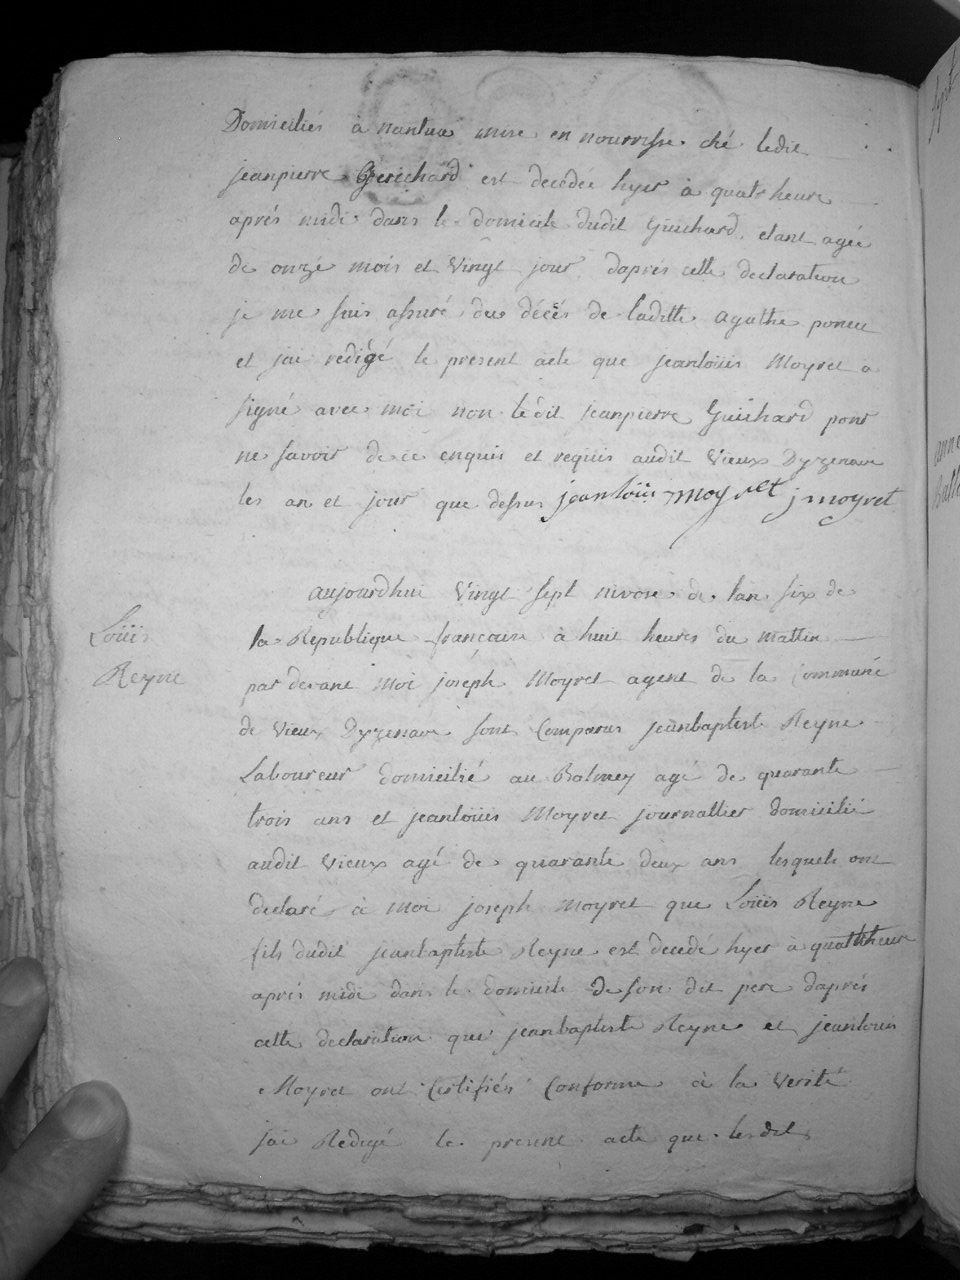 Domiciliés à nantua mise en nourrisse ché ledit
jeanpierre Guichard est decedée hyer à quatr heure
aprés midi dans le domicile dudit Guichard etant agée
de onze mois et vingt jour daprés cette declaration
je me suis assuré du décés de laditte agathe poncu
et jai redigé le present acte que jeanloüis Moyret a
signé avec moi non ledit jeanpierre Guichard pour
ne savoir de ce enquis et requis audit vieux Dyzenave
les an et jour que dessus jeanloüis moyret j moyret
aujourdhui vingt sept nivose de lan six de
la Republique francaise à huit heures du mattin
par devant Moi joseph Moyret agent de la Commune
de vieux Dyzenave sont Comparus jeanbaptiste Reyne
Laboureur domicilié au Balmey agé de quarante
trois ans et jeanloüis Moyret journallier domicilié
audit vieux agé de quarante deux ans lesquels ont
declaré à Moi joseph Moyret que Loüis Reÿne
fils dudit jeanbaptiste Reyne est decedé hyer à quattrheure
aprés midi dans le domicile de son dit pere daprés
cette declaration que jeanbaptiste Reyne et jeanlouis
Moyret ont Certifiés Conforme à la verité
jai Redigé le present acte que lesdits
Loüis
Reyne
anne